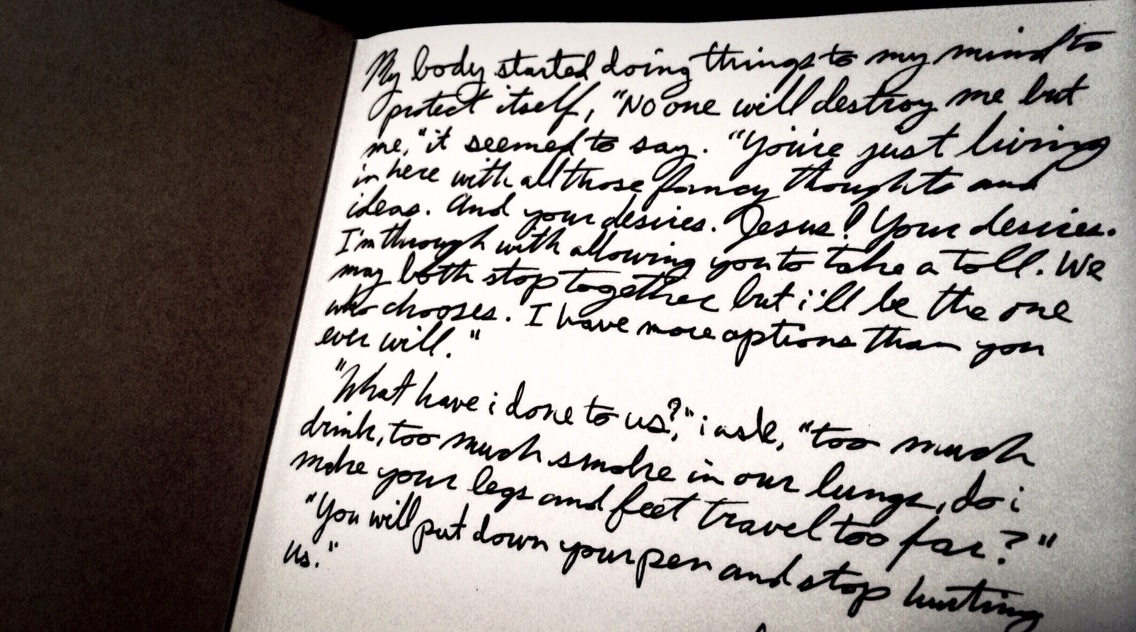 My body started doing things to my mind to
protect itself, "No one will destroy me but
me," it seemed to say. "You're just living
in here with all those fancy thoughts and
ideas. And your desires. Jesus! Your desires.
I'm through with allowing you to take a toll. We
may both stop together but i'll be the one
who chooses. I have more options than you
ever will."
"What have i done to us?," i ask, "too much
drink, too much smoke in our lungs, do i
make your legs and feet travel too far?"
"You will put down your pen and stop hurting
us."